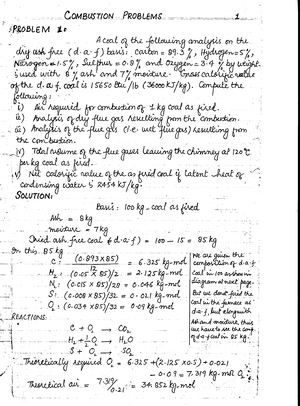 COMBUSTION PROBLEMS 1
PROBLEM 1:
A coal of the following analysis on the
dry ash free (d.a.f) basis: Carbon = 89.3%, Hydrogen = 5%,
Nitrogen = 1.5%, Sulphur = 0.8% and Oxygen = 3.4% by weight
is used with 8% ash and 7% moisture. Gross calorific value
of the d.a.f. coal is 15650 Btu/lb (36000 kJ/kg). Compute the
following:
i) Air required for combustion of 1 kg coal as fired.
ii) Analysis of dry flue gas resulting from the combustion.
iii) Analysis of the flue gas (i.e. wet flue gas) resulting from
the combustion.
iv) Total volume of the flue gases leaving the chimney at 120°C
per kg coal as fired.
v) Net calorific value of the as fired coal if latent heat of
condensing water is 2454 kJ/kg.
SOLUTION:
Basis: 100 kg coal as fired
Ash = 8 kg
moisture = 7 kg
Dried ash free coal (d.a.f) = 100 - 15 = 85 kg
On this 85 kg
C: (0.893×85)/12 = 6.325 kg-mol
H2: (0.05×85)/2 = 2.125 kg-mol
N2: (0.015×85)/28 = 0.046 kg-mol
S: (0.008×85)/32 = 0.021 kg-mol
O2: (0.034×85)/32 = 0.09 kg-mol
We are given the
composition of d.a.f
coal in 100 as shown in
diagram at next page.
But we donot feed the
coal in the furnace as
d.a.f, but along with
ash and moisture, thus
we have to see the comp.
of d.a.f coal in 85 kg.
REACTIONS:
C + O2 → CO2
H2 + ½O2 → H2O
S + O2 → SO2
Theoretically required O2 = 6.325 + (2.125×0.5) + 0.021
- 0.09 = 7.319 kg-mol O2
Theoretical air = 7.319/0.21 = 34.852 kg-mol